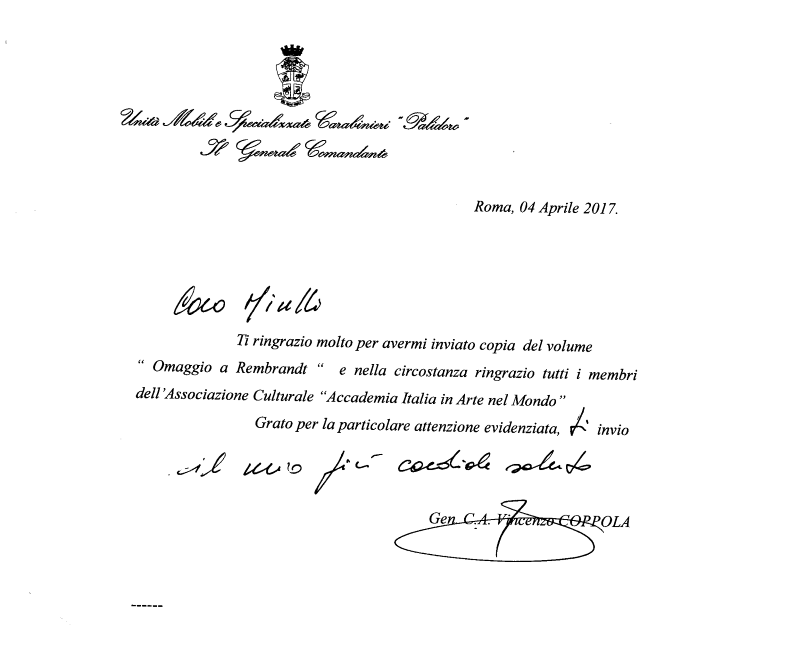 Unità Mobili e Specializzate Carabinieri "Palidoro"
Il Generale Comandante
Roma, 04 Aprile 2017.
Caro Miulli
Ti ringrazio molto per avermi inviato copia del volume
“ Omaggio a Rembrandt “ e nella circostanza ringrazio tutti i membri
dell’Associazione Culturale “Accademia Italia in Arte nel Mondo”
Grato per la particolare attenzione evidenziata, ti invio
il mio più cordiale saluto
Gen C.A. Vincenzo COPPOLA
------